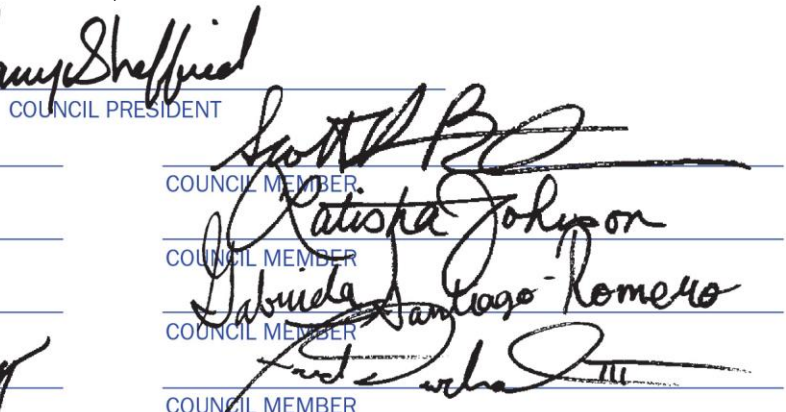 Sheffield
COUNCIL PRESIDENT
Scott
COUNCIL MEMBER
Latisha Johnson
COUNCIL MEMBER
Gabriela Santiago-Romero
COUNCIL MEMBER
Fred Durhal III
COUNCIL MEMBER